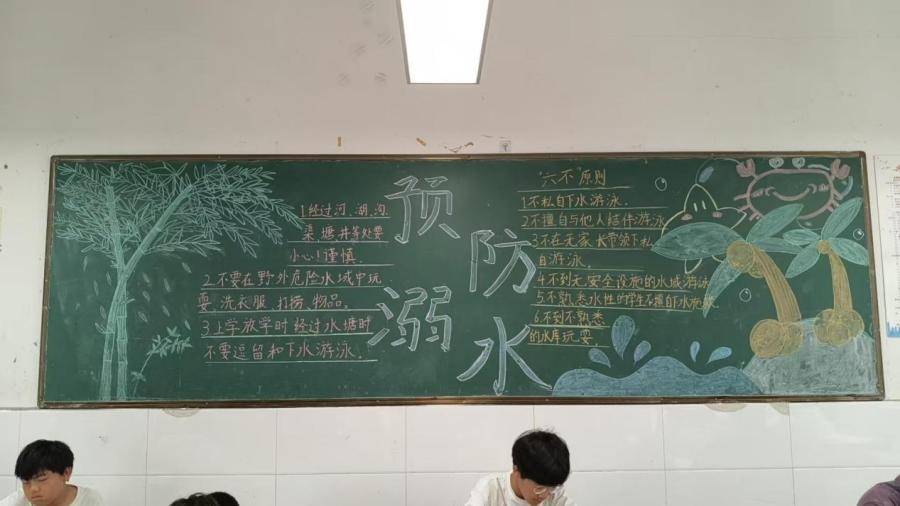 1.经过河、湖、沟、
渠、塘、井等处要
小心!谨慎.
2.不要在野外危险水域中玩
耍、洗衣服、打捞、物品。
3.上学放学时经过水塘时
不要逗留和下水游泳.
预
防
溺
水
"六不"原则
1.不私自下水游泳.
2.不擅自与他人结伴游泳
3.不在无家长带领下私
自游泳.
4.不到无安全设施的水域游泳
5.不熟悉水性的学生不擅自下水施救
6.不到不熟悉
的水库玩耍.